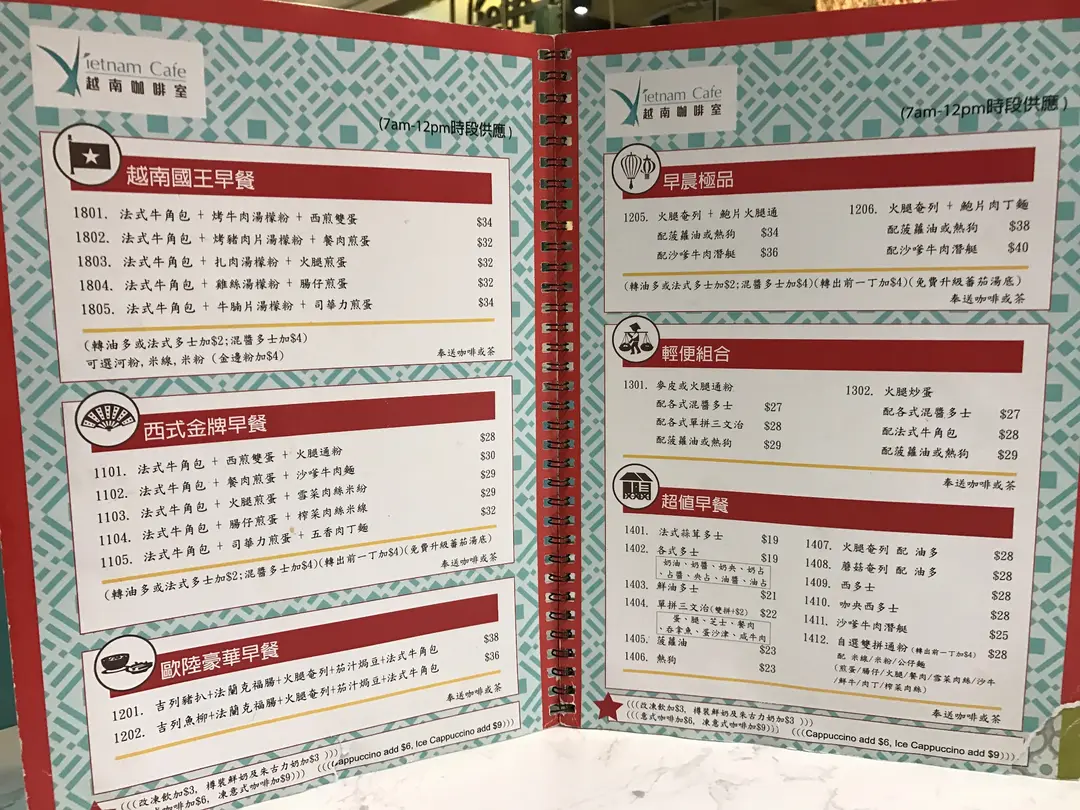 Vietnam Cafe
越南咖啡室
(7am-12pm時段供應)
越南國王早餐
1801. 法式牛角包 + 烤牛肉湯檬粉 + 西煎雙蛋 $34
1802. 法式牛角包 + 烤豬肉片湯檬粉 + 餐肉煎蛋 $32
1803. 法式牛角包 + 扎肉湯檬粉 + 火腿煎蛋 $32
1804. 法式牛角包 + 雞絲湯檬粉 + 腸仔煎蛋 $32
1805. 法式牛角包 + 牛腩片湯檬粉 + 司華力煎蛋 $34
(轉油多或法式多士加$2;混醬多士加$4)
可選河粉,米線,米粉 (金邊粉加$4)
奉送咖啡或茶
西式金牌早餐
1101. 法式牛角包 + 西煎雙蛋 + 火腿通粉 $28
1102. 法式牛角包 + 餐肉煎蛋 + 沙嗲牛肉麵 $30
1103. 法式牛角包 + 火腿煎蛋 + 雪菜肉絲米粉 $29
1104. 法式牛角包 + 腸仔煎蛋 + 榨菜肉絲米線 $29
1105. 法式牛角包 + 司華力煎蛋 + 五香肉丁麵 $32
(轉油多或法式多士加$2;混醬多士加$4)(轉出前一丁加$4)(免費升級蕃茄湯底)
奉送咖啡或茶
歐陸豪華早餐
1201. 吉列豬扒+法蘭克福腸+火腿奄列+茄汁焗豆+法式牛角包 $38
1202. 吉列魚柳+法蘭克福腸+火腿奄列+茄汁焗豆+法式牛角包 $36
奉送咖啡或茶
(((改凍飲加$3, 樽裝鮮奶及朱古力奶加$3 )))
咖啡加$6, 凍意式咖啡加$9))) (((Cappuccino add $6, Ice Cappuccino add $9)))
Vietnam Cafe
越南咖啡室
(7am-12pm時段供應)
早晨極品
1205. 火腿奄列 + 鮑片火腿通
配菠蘿油或熱狗 $34
配沙嗲牛肉潛艇 $36
1206. 火腿奄列 + 鮑片肉丁麵
配菠蘿油或熱狗 $38
配沙嗲牛肉潛艇 $40
(轉油多或法式多士加$2;混醬多士加$4)(轉出前一丁加$4)(免費升級蕃茄湯底)
奉送咖啡或茶
輕便組合
1301. 麥皮或火腿通粉
配各式混醬多士 $27
配各式單拼三文治 $28
配菠蘿油或熱狗 $29
1302. 火腿炒蛋
配各式混醬多士 $27
配法式牛角包 $28
配菠蘿油或熱狗 $29
奉送咖啡或茶
超值早餐
1401. 法式蒜茸多士 $19
1402. 各式多士 $19
奶油、奶醬、奶央、奶占
、占醬、央占、油醬、油占
1403. 鮮油多士 $21
1404. 單拼三文治(雙拼+$2) $22
蛋、腿、芝士、餐肉
、吞拿魚、蛋沙津、咸牛肉
1405. 菠蘿油 $23
1406. 熱狗 $23
1407. 火腿奄列 配 油多 $28
1408. 蘑菇奄列 配 油多 $28
1409. 西多士 $28
1410. 咖央西多士 $28
1411. 沙嗲牛肉潛艇 $25
1412. 自選雙拼通粉 (轉出前一丁加$4) $28
配 米線/米粉/公仔麵
(煎蛋/腸仔/火腿/餐肉/雪菜肉絲/沙牛
/鮮牛/肉丁/榨菜肉絲)
奉送咖啡或茶
(((改凍飲加$3, 樽裝鮮奶及朱古力奶加$3 )))
(((意式咖啡加$6, 凍意式咖啡加$9))) (((Cappuccino add $6, Ice Cappuccino add $9)))